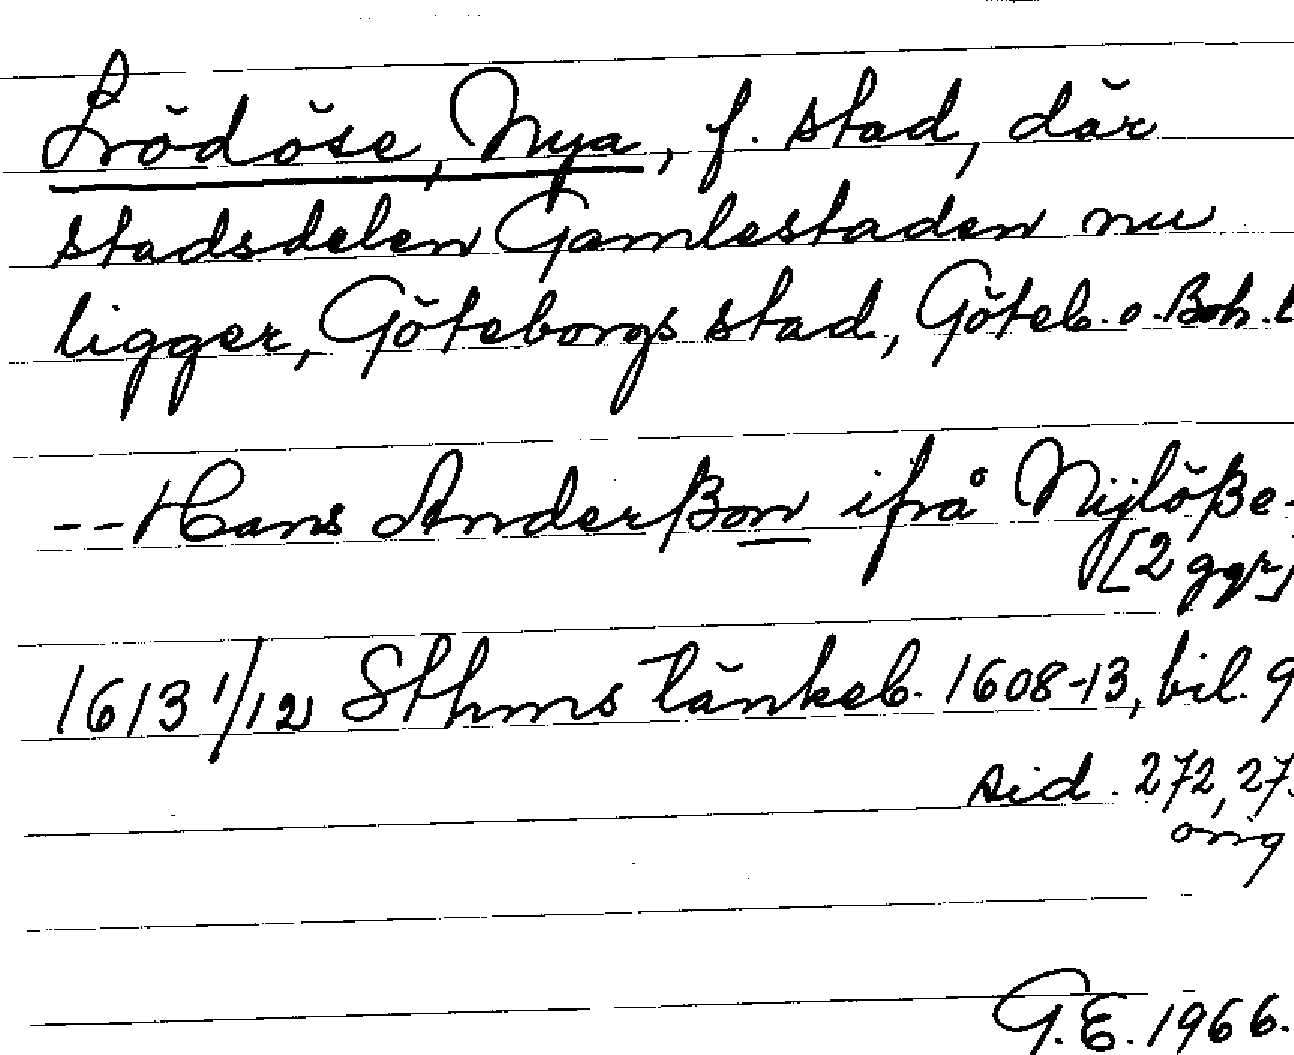 Lödöse, Nya, f. stad, där
stadsdelen Gamlestaden nu
ligger, Göteborgs stad, Göteb. o. Boh. l
--Hans Anderßon ifrå Nijlöße-
[2 ggr]
1613 1/12 Sthms tänkeb. 1608-13, bil. 9
sid. 272, 27
orig
G.E. 1966.